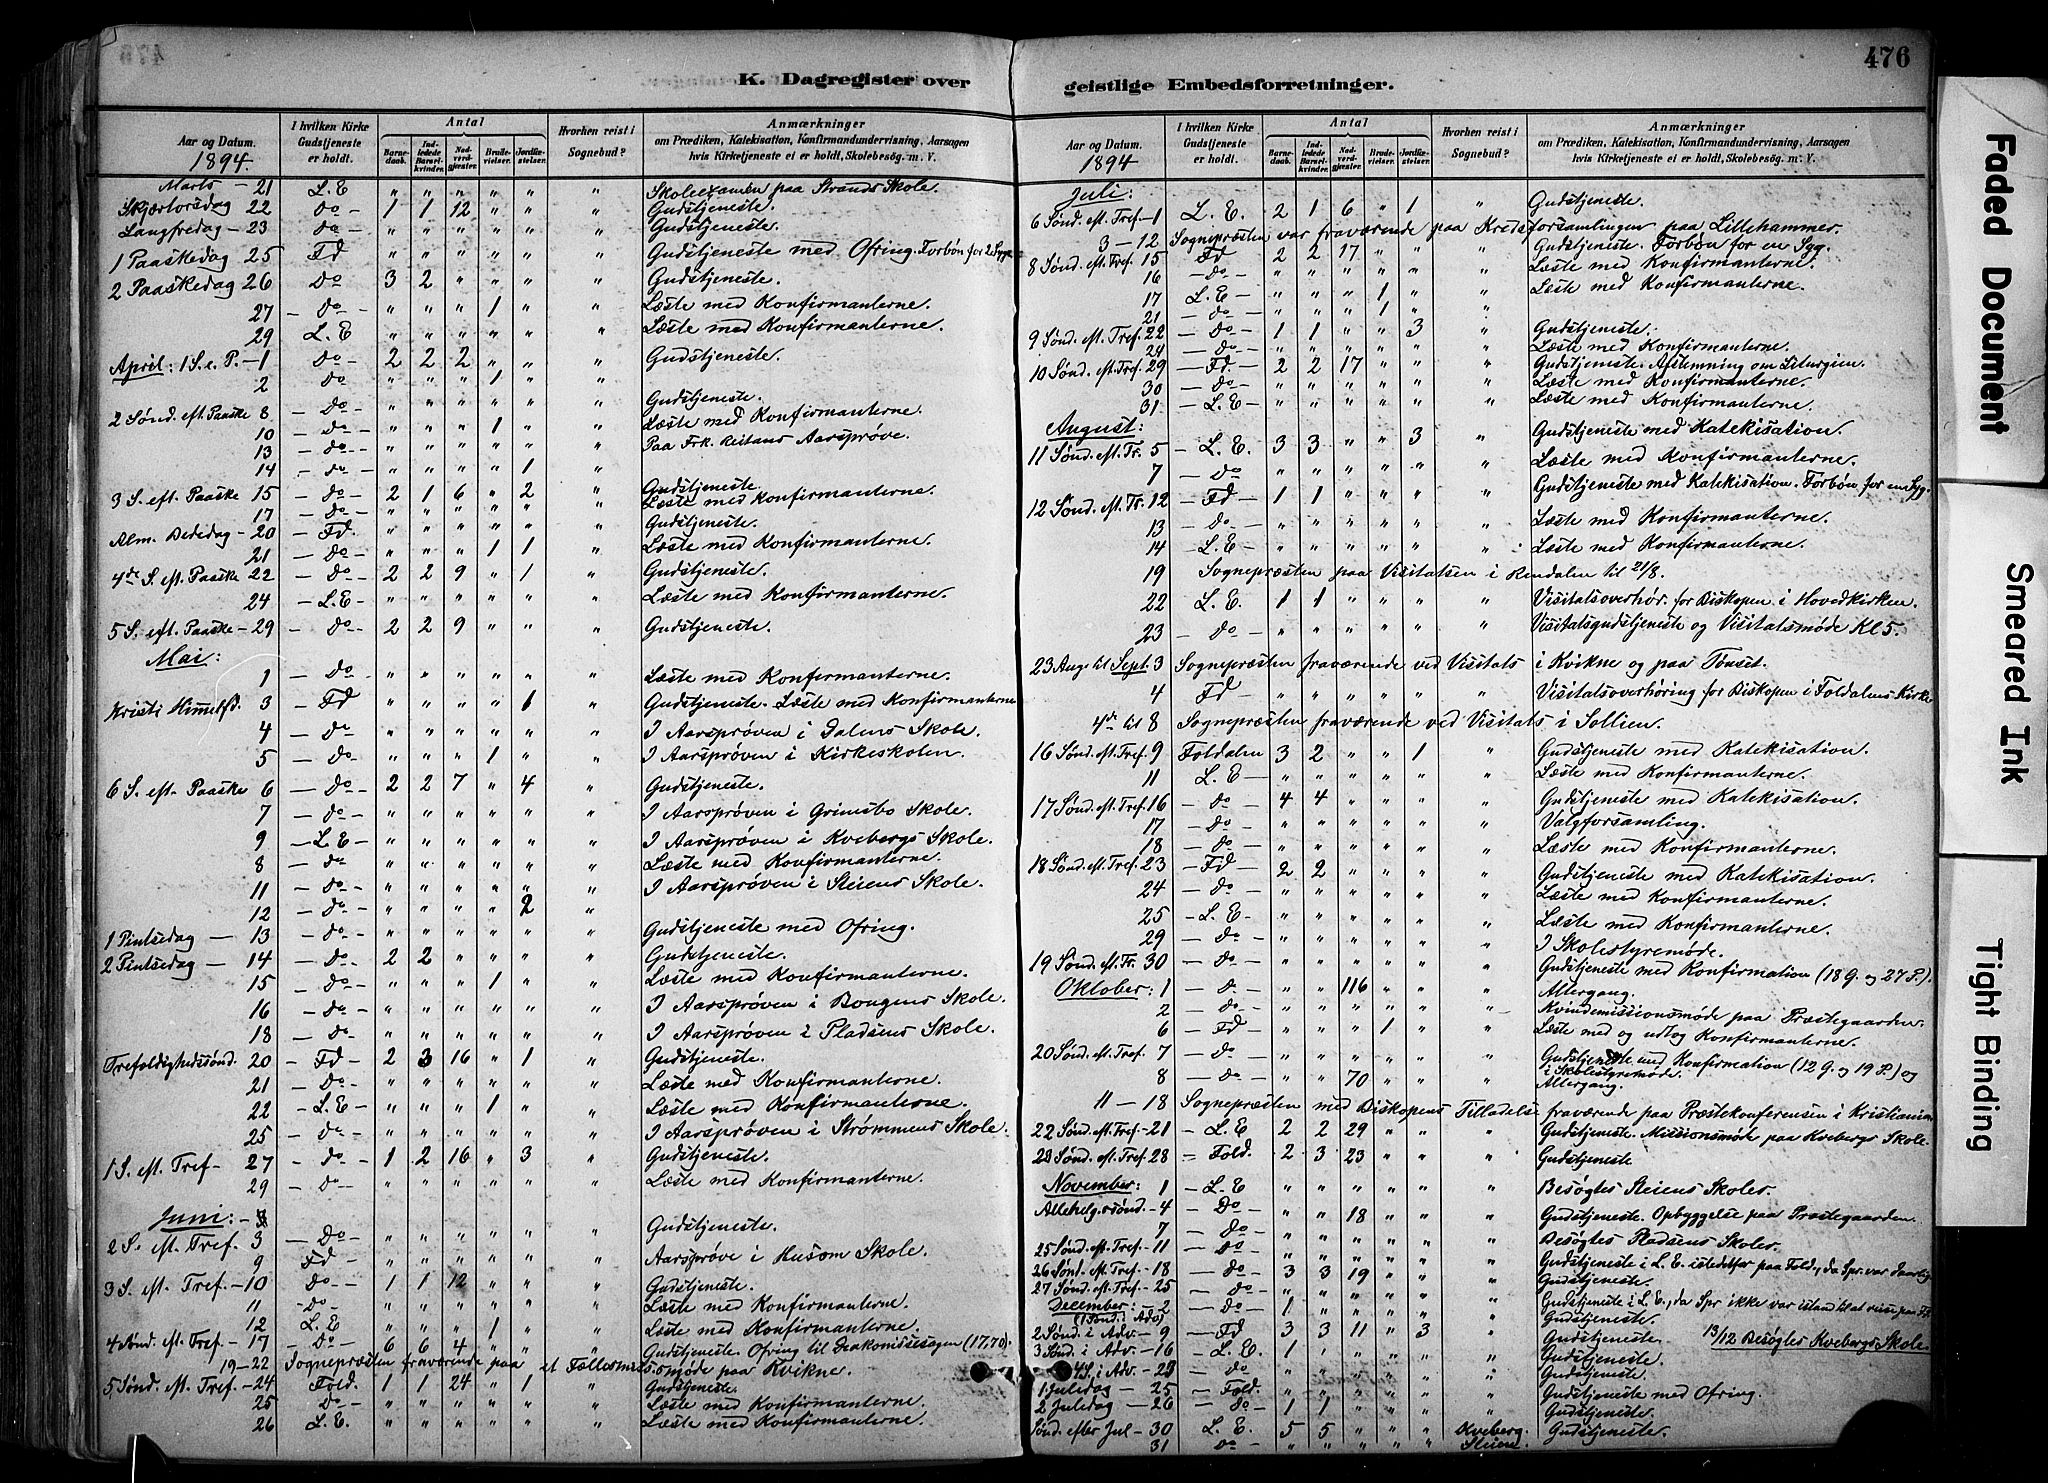 476
K. Dagregister over geistlige Embedsforretninger.
Aar og Datum. 1894. | I hvilken Kirke Gudstjeneste er holdt. | Antal | Barnedaab. | Indledede Barselkvinder. | Nadverdgjester. | Brudevielser. | Jordfæstelser. | Hvorhen reist i Sognebud? | Anmærkninger om Prædiken, Katekisation, Konfirmandundervisning, Aarsagen hvis Kirketjeneste ei er holdt, Skolebesøg. m. V.
Marts - 21 L. E " " " " " " Skoleexamen paa Strands Skole.
Skjærtorsdag 22 do 1 1 12 " " " Gudstjeneste.
Langfredag - 23 do " " " " " " Gudstjeneste.
1 Paaskedag 25 Fd " " " " " " Gudstjeneste med Ofring. Forbøn for 2 Syge
2 Paaskedag 26 Do 3 2 " " " " Gudstjeneste.
27 - do " " " 1 " " Læste med Konfirmanterne.
29 L. E " " " " " " Læste med Konfirmanterne.
April: 1 S. e. P. - 1 Do 2 2 2 " " " Gudstjeneste.
2 do " " " 1 " "
2 Sønd. eft Paaske 8 - Do " " " " " " Gudstjeneste.
10 - Do " " " 1 " " Læste med Konfirmanterne.
13 - do " " " " " " Paa Frk. Reitans Aarsprøve.
14 - do " " " " 1 "
3 S. eft. Paaske 15 - Do 2 1 6 " 2 " Gudstjeneste.
17 - do " " " " " " Læste med Konfirmanterne.
Alm. Bededag - 20 - Fd. " " " " " " Gudstjeneste.
21 - Do " " " 1 1 " Læste med Konfirmanterne.
4de S. eft. Paaske 22 - Do 2 2 9 " 1 " Gudstjeneste.
24 - L. E " " " " " " Læste med Konfirmanterne.
5 S. eft Paaske - 29 - Do 2 2 9 " " " Gudstjeneste.
Mai:
1 - Do " " " " " " Læste med Konfirmanterne.
Kristi Himmelfd. 3 - Fd " " " " 1 " Gudstjeneste. Læste med Konfirmanterne
4 - Do " " " " " " I Aarsprøven i Dalens Skole.
5 - Do " " " 1 " " I Aarsprøven i Kirkeskolen.
6 S. eft. Paaske 6 - Do 2 2 7 " 4 " Gudstjeneste.
7 - do " " " " " " I Aarsprøven i Grimsbo Skole.
9 - L. E - " " " " " " I Aarsprøven i Kvebergs Skole.
8 - do " " " " " " Læste med Konfirmanterne.
11 - do " " " " " " I Aarsprøven i Steiens Skole.
12 - do " " " " 2 "
1 Pintsedag - 13 - Do " " " " " " Gudstjeneste med Ofring.
2 Pintsedag - 14 - Do 2 2 " " " " Gudstjeneste.
15 - Do " " " 1 " " Læste med Konfirmanterne.
16 - do " " " " " " I Aarsprøven i Bougens Skole.
18 - Do " " " " " " I Aarsprøven i Pladsens Skole.
Trefoldighedssønd. 20 - Fd 2 3 16 " 1 " Gudstjeneste.
21 - Do " " " " " " Læste med Konfirmanterne.
22 - L. E - " " " 1 " " Læste med Konfirmanterne.
25 - Do " " " " " " I Aarsprøven i Strømmens Skole.
1 S. eft. Tref - 27 - do 1 2 16 " 3 " Gudstjeneste.
29 - do " " " " " " Læste med Konfirmanterne.
Juni:
2 S. eft Tref. 3 - Do " " " " " " Gudstjeneste.
9 Fd " " " " " " Aarsprøve i Husom Skole.
3 S. eft. Tref. - 10 Do 1 1 12 " " " Gudstjeneste.
11 Do " " " " " " Læste med Konfirmanterne.
12 L. E " " " 1 " " Læste med Konfirmanterne.
4 Sønd. eft. Tref - 17 - Do 6 6 4 " " " Gudstjeneste. Ofring til Zrakomissesagen (17,70).
19 - 22 Sognepræsten fraværende paa et Fællesmissmøde paa Kvikne.
5 Sønd. eft. Tref. - 24 Fold. 1 1 24 " 1 " Gudstjeneste.
25 Do " " " " " " Læste med Konfirmanterne.
26 L. E. " " " " " " Læste med Konfirmanterne.
Aar og Datum. 1894 | I hvilken Kirke Gudstjeneste er holdt. | Antal | Barnedaab. | Indledede Barselkvinder. | Nadverdgjester. | Brudevielser. | Jordfæstelser. | Hvorhen reist i Sognebud? | Anmærkninger om Prædiken, Katekisation, Konfirmandundervisning, Aarsagen hvis Kirketjeneste ei er holdt, Skolebesøg. m. V.
Juli:
6 Sønd. eft. Tref - 1 L. E. 2 1 6 " 1 " Gudstjeneste.
3 - 12 Sognepræsten var fraværende paa Kredsforsamlingen paa Lillehammer.
8 Sønd. eft. Tref. 15 Fd 2 2 17 " " " Gudstjeneste. Forbøn for en Syg.
16 - do " " " " " " Læste med Konfirmanterne.
17 L. E - " " " 1 " " Læste med Konfirmanterne.
21 - do " " " 1 " "
9 Sønd. eft. Tref. 22 - do 1 1 " " 3 " Gudstjeneste.
24 - do " " " " " " Læste med Konfirmanterne.
10 Sønd. eft. Tref. 29 - Fd. 2 2 17 " " " Gudstjeneste. Afstemning om Liturgien.
30 - do " " " " " " Læste med Konfirmanterne.
31 - L. E - " " " " " " Læste med Konfirmanterne.
August:
11 Sønd. eft. Tr. 5 - L. E. 3 3 " " 3 " Gudstjeneste med Katekisation.
7 - Do " " " " " " Læste med Konfirmanterne.
12 Sønd. eft. Tr. 12 - Fd 1 1 " " " " Gudstjeneste med Katekisation. Forbøn for en Syg.
13 - do " " " " " " Læste med Konfirmanterne.
14 - L. E - " " " " " " Læste med Konfirmanterne.
19 Sognepræsten paa Visitatsen i Rendalen til 21/8.
22 L. E. 1 1 " " " " Visitatsoverhør. for Biskopen i Hovedkirken.
23 - Do " " " " " " Visitatsgudstjeneste og Visitatsmøde Kl 5.
23 Aug. til Sept. 3 Sognepræsten fraværende ved Visitats i Kvikne og paa Tønset.
4 Fd " " " " " " Visitatsoverhøring for Biskopen i Foldalens Kirke
4de til 8 Sognepræsten fraværende ved Visitats i Sollien.
16 Sønd. eft. Tref. 9 Foldalen 3 2 " " 1 " Gudstjeneste med Katekisation.
11 L. E - " " " " " " Læste med Konfirmanterne.
17 Sønd. eft. Tref. 16 - do 4 4 " " " " Gudstjeneste med Katekisation.
17 - do " " " " " " Valgforsamling.
18 - do " " " " " " Læste med Konfirmanterne.
18 Sønd. eft. Tref. 23 - Fd 2 2 " " " " Gudstjeneste med Katekisation.
24 - do " " " " " " Læste med Konfirmanterne.
25 - L. E " " " " " " Læste med Konfirmanterne.
29 - do " " " " " " I Skolestyremøde.
19 Sønd. eft. Tr. 30 - do " " " " " " Gudstjeneste med Konfirmation (18 G. og 27 P.).
Oktober: 1 - do " " 116 " " " Altergang.
2 - do " " " " " " Kvindemissionsmøde paa Præstegaarden.
6 - Fd " " " 1 " " Læste med og udtog Konfirmanterne.
20 Sønd. eft. Tref. 7 - do " " " " " " Gudstjeneste med Konfirmation (12 G. og 19 P.) og i Skolestyremøde.
8 - do " " 70 " " " Altergang.
11 - 18 Sognepræsten med Biskopens Tilladelse fraværende paa Præstekonferensen i Kristiania
22 Sønd. eft. Tref - 21 - L. E 2 2 29 " " " Gudstjeneste. Missionsmøde paa Kvebergs Skole.
23 Sønd. eft. Tref 28 - Fold. 2 3 23 " " " Gudstjeneste
November: 1 - L. E " " " " " " Besøgtes Steiens Skoler.
Allehelg.ssønd. - 4 - Do " " 18 " " " Gudstjeneste. Opbyggelse paa Præstegaarden.
7 - do " " " " " " Besøgtes Pladsens Skoler.
25 Sønd. eft. Tref. - 11 - do " " " " " " Gudstjeneste i L. E. istedetfor paa Fold., da Spr. var daarlig
26 Sønd. eft. Tref - 18 - do 3 3 19 " " " Gudstjeneste.
27 Sønd. eft. Tref - 25 - do " " " " " " Gudstjeneste i L. E., da Spr ikke var istand til at reise paa Fd.
December: - 2 (1 Sønd. i Adv.) - do 1 " " " " " Gudstjeneste.
2 Sønd. i Adv. - 9 - Fd 3 3 11 " 3 " Gudstjeneste. 13/12 Besøgtes Kvebergs Skole.
3 Sønd. i Adv. - 16 - L. E. 1 " " " " " Gudstjeneste.
4 S. i Adv. - 23 - do " " " " " " Gudstjeneste.
1 Juledag - 25 - Fold. " " " " " " Gudstjeneste med Ofring.
2 Juledag - 26 - do 1 1 " " " " Gudstjeneste.
Sønd. efter Jul - 30 L. E. 5 5 " " " Kveberg. Gudstjeneste.
31 do " " " " " Steien.
Faded Document
Smeared Ink
Tight Binding